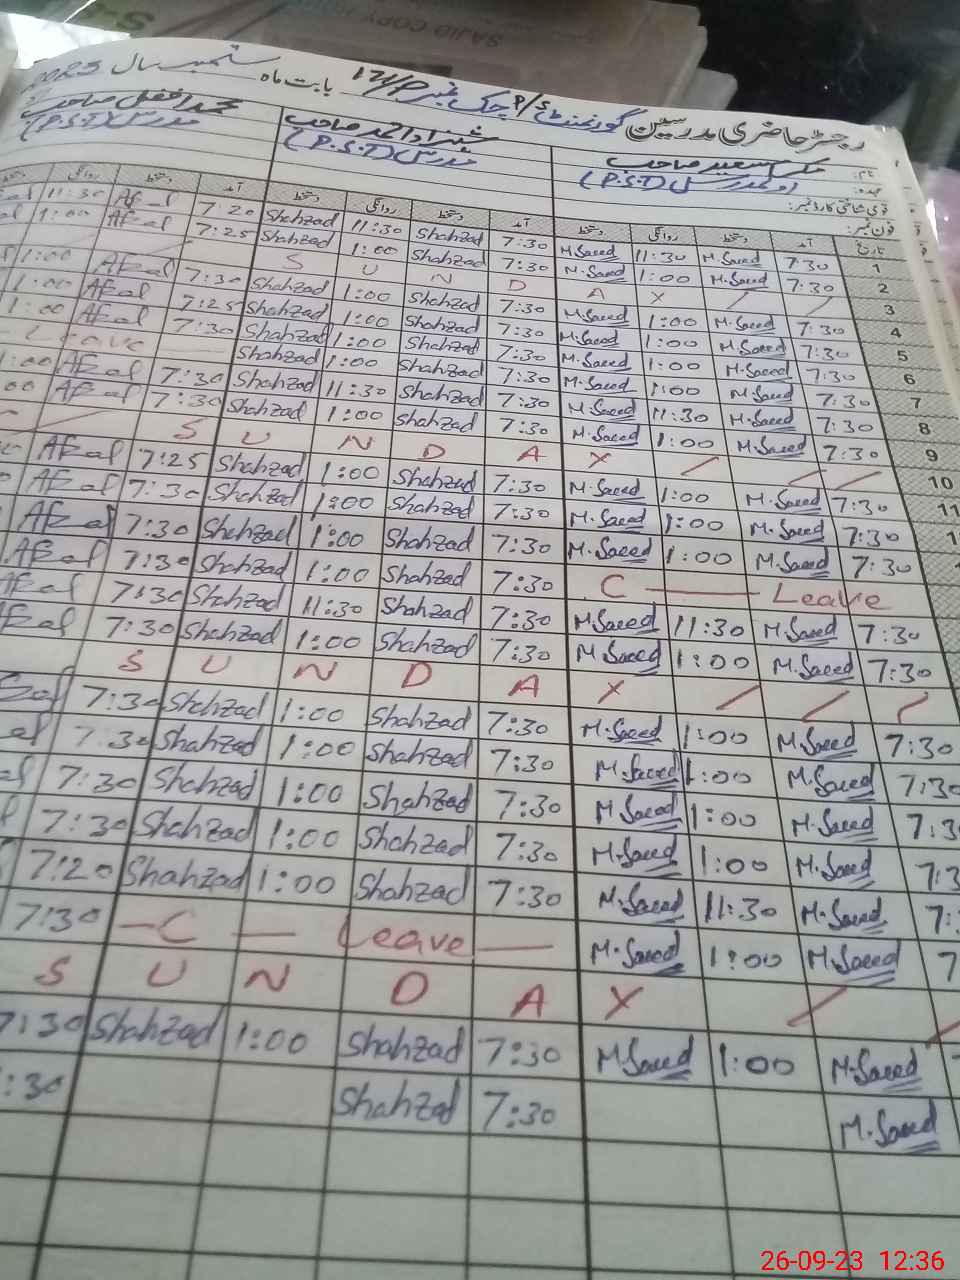 SAJID COPY
رجسٹر حاضری مدرسین گورنمنٹ P/S چک نمبر 124/P بابت ماہ ستمبر سال 2023
نام: سعید صاحب شہزاد احمد صاحب محمد افضل صاحب
عہدہ: (P.S.T) مدرس (P.S.T) مدرس (P.S.T)
قومی شناختی کارڈ نمبر:
فون نمبر:
تاریخ آمد دستخط روانگی دستخط آمد دستخط روانگی دستخط آمد دستخط روانگی دستخط
1 7:30 M.Saeed 11:30 M.Saeed 7:30 Shahzad 11:30 Shahzad 7:20 Afzal 11:30
2 7:30 M.Saeed 1:00 M.Saeed 7:30 Shahzad 1:00 Shahzad 7:25 Afzal 1:00
3 S U N D A Y
4 7:30 M.Saeed 1:00 M.Saeed 7:30 Shahzad 1:00 Shahzad 7:30 Afzal 1:00
5 7:30 M.Saeed 1:00 M.Saeed 7:30 Shahzad 1:00 Shahzad 7:25 Afzal 1:00
6 7:30 M.Saeed 1:00 M.Saeed 7:30 Shahzad 1:00 Shahzad 7:30 Afzal 1:00
7 7:30 M.Saeed 1:00 M.Saeed 7:30 Shahzad 1:00 Shahzad Leave
8 7:30 M.Saeed 11:30 M.Saeed 7:30 Shahzad 11:30 Shahzad 7:30 Afzal 1:00
9 7:30 M.Saeed 1:00 M.Saeed 7:30 Shahzad 1:00 Shahzad 7:30 Afzal 00
10 S U N D A Y
11 7:30 M.Saeed 1:00 M.Saeed 7:30 Shahzad 1:00 Shahzad 7:25 Afzal
7:30 M.Saeed 1:00 M.Saeed 7:30 Shahzad 1:00 Shahzad 7:30 Afzal
7:30 M.Saeed 1:00 M.Saeed 7:30 Shahzad 1:00 Shahzad 7:30 Afzal
C Leave 7:30 Shahzad 1:00 Shahzad 7:30 Afzal
7:30 M.Saeed 11:30 M.Saeed 7:30 Shahzad 11:30 Shahzad 7:30 Afzal
7:30 M.Saeed 1:00 M.Saeed 7:30 Shahzad 1:00 Shahzad 7:30 Afzal
S U N D A Y
7:30 M.Saeed 1:00 M.Saeed 7:30 Shahzad 1:00 Shahzad 7:30
7:30 M.Saeed 1:00 M.Saeed 7:30 Shahzad 1:00 Shahzad 7:30
7:3 M.Saeed 1:00 M.Saeed 7:30 Shahzad 1:00 Shahzad 7:30
7:3 M.Saeed 1:00 M.Saeed 7:30 Shahzad 1:00 Shahzad 7:30
7: M.Saeed 11:30 M.Saeed 7:30 Shahzad 1:00 Shahzad 7:20
7 M.Saeed 1:00 M.Saeed C Leave 7:30
S U N D A Y
M.Saeed 1:00 M.Saeed 7:30 Shahzad 1:00 Shahzad 7:30
M.Saeed 7:30 Shahzad :30
26-09-23 12:36